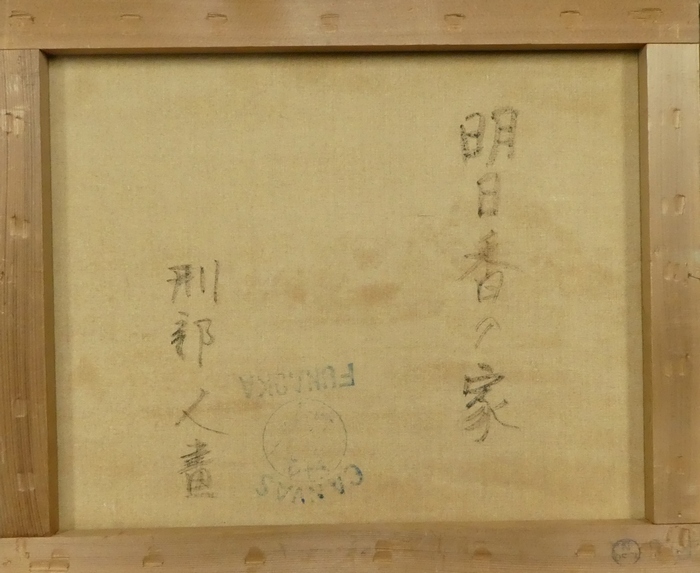 明日香の家
刑部人畫
FUKUOKA
CANVAS